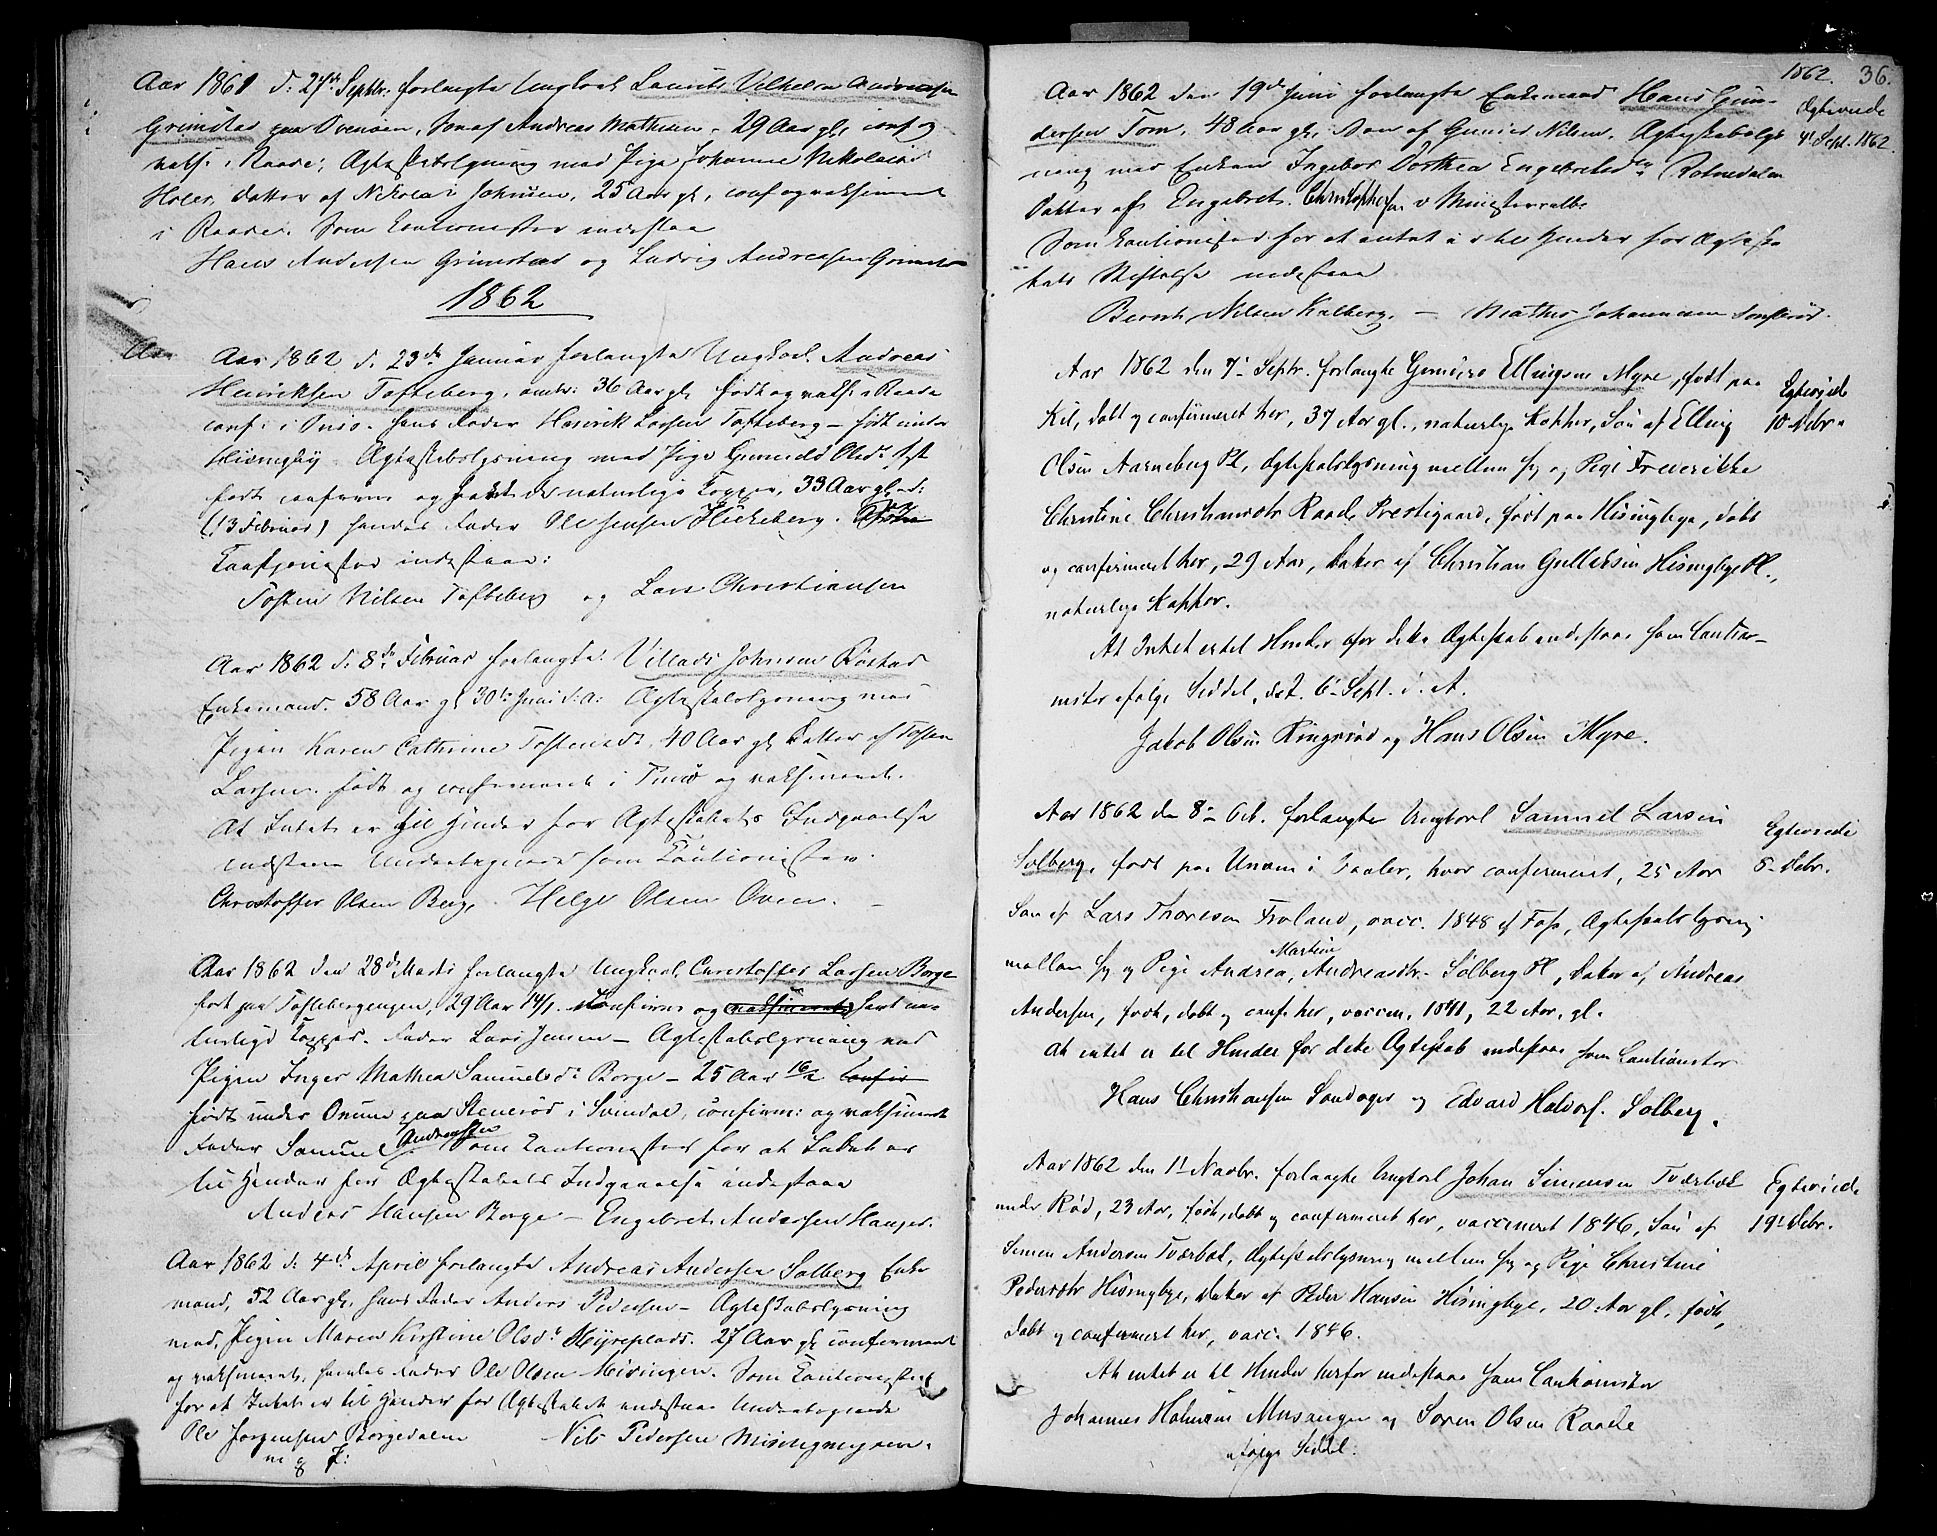 Aar 1861 d: 27de Septbr: forlangte Ungkarl Laurits Vilhelm Andreasen
Grimstad paa Ovenøen, Søn af Andreas Mathisen, 29 Aar gl, conf og
vaks: i Raade; Ægteskabslysning med Pige Johanne Nikolaisd
Holer, Datter af Nikolai Johnsen, 25 Aar gl, conf og vaksineret
i Raade. Som Kautionister indestaa
Hans Andersen Grimstad og Ludvig Andreasen Grimstad
1862
Aar
Aar 1862 d. 23de Januar forlangte Ungkarl Andreas
Henriksen Tofteberg, omtr: 36 Aar gl, født og vaks: i Raade
conf: i Onsø. Hans Fader Henrik Larsen Tofteberg – født under
Huseby Ægteskabslysning med Pige Gunild Olsdr
født confirm og havt de naturlige Kopper, 33 Aar gl. d:
(13 Februar) hendes Fader Ole Jensen Hickeberg.
Kautionister indestaar:
Tosten Nilsen Tofteberg og Lars Christiansen
Aar 1862 d. 8de Februar forlangte Villads Johnsen Røstad
Enkemand. 58 Aar gl 30te Juni d: a: Ægteskabslysning med
Pigen Karen Cathrine Tostensdt, 40 Aar gl Datter af Tosten
Larsen. født og confirmeret i Tunø og vaksineret.
At Intet er til Hinder for Ægteskabets Indgaaelse
indestaa Undertegnede som Kautionister.
Christoffer Olsen Berg, Helge Olsen Oven. –
Aar 1862 den 28de Marts forlangte Ungkarl, Christoffer Larsen Borge
født paa Toftebergengen, 29 Aar 14/1. Confirm og havt na-
turlige Kopper. Fader Lars Jensen – Ægteskabslysning med
Pigen Inger Mathea Samuelsdr Borge – 25 Aar 16/2
født under Onum paa Stenerød i Svindal, confirm: og vaksineret
Fader Samuel Andreassen Som Kautionister for at Intet er
til Hinder for Ægteskabets Indgaaelse indestaa
Anders Hansen Borge – Engebret Andersen Hauger.
Aar 1862 d: 4de April forlangte Andreas Andersen Solberg Enke
mand, 52 Aar gl, hans Fader Anders Pedersen – Ægteskabslysning
med, Pigen Maren Kirstine Olsdr Myreplads. 27 Aar gl confirmeret
og vaksineret, hendes Fader Ole Olsen Meisingen. Som Kautionister
for at Intet er til Hinder for Ægteskabet indestaa Undertegnede
Ole Jørgensen Borgedalen Nils Pedersen Misingmyren.
m g P:
1862. 36.
Aar 1862 den 19de Juni forlangte Enkemand Hans Gun-
dersen Tom, 48 Aar gl, Søn af Gunder Nilsen, Ægteskabslys
ning med Enken Ingebor Dorthea Engebretsd Rolvedalen
Datter af Engebret Christophersen
Som Kautionister for at intet er til Hinder for Ægteska
bets Stiftelse indestaa
Bernt Nilsen Kalberg. – Mathis Johannesen Tomterød.
Ægteviede
4' Sept. 1862.
Aar 1862 den 7' Septr. forlangte Gunder Ellingsen Myre, født paa
Kil, døbt og confirmeret her, 37 Aar gl., naturlige Kopper, Søn af Elling
Olsen Aarneberg Pl, Ægteskabslysning mellem sig og Pige Frederikke
Christine Christiansdtr Raade Prestegaard, født paa Hisingbye, døbt
og confirmeret her, 29 Aar, Datter af Christian Gulliksen Hisingbye Pl.,
naturlige Kopper.
At Intet er til Hinder for dette Ægteskab indestaae som Cautio-
nister ifølge Seddel, dat. 6' Sept. d. A.
Jakob Olsen Ringsrød og Hans Olsen Myre.
Egteviede
10 Debr.
Aar 1862 den 8' Oct. forlangte Ungkarl Samuel Larsen
Solberg, født paa Unum i Vaaler, hvor confirmeret, 25 Aar
Søn af Lars Thoresen Froland, vacc. 1848 af Foss, Ægteskabslysning
mellem sig og Pige Andrea Martine Andreasdtr. Solberg Pl, Datter af, Andreas
Andersen, født, døbt og conf her, vaccin. 1841, 22 Aar. gl.
At intet er til Hinder for dette Ægteskab indestaae som Cautionister
Hans Christiansen Sandager og Edvard Haldors. Solberg.
Egteviede
5' Debr.
Aar 1862 den 1' Novbr. forlangte Ungkarl Johan Simensen Tværbæk
under Rød, 23 Aar, født, døbt og confirmeret her, vaccineret 1846, Søn af
Simen Andersen Tværbæk, Ægteskabslysning mellem sig og Pige Christine
Pedersdtr Hisingbye, Datter af Peder Hansen Hisingbye, 20 Aar gl, født,
døbt og confirmeret her, vacc. 1846.
At intet er til Hinder herfor indestaae som Cautionister
Johannes Halvorsen Musanger og Søren Olsen Raade
ifølge Seddel.
Egteviede
19' Debr.